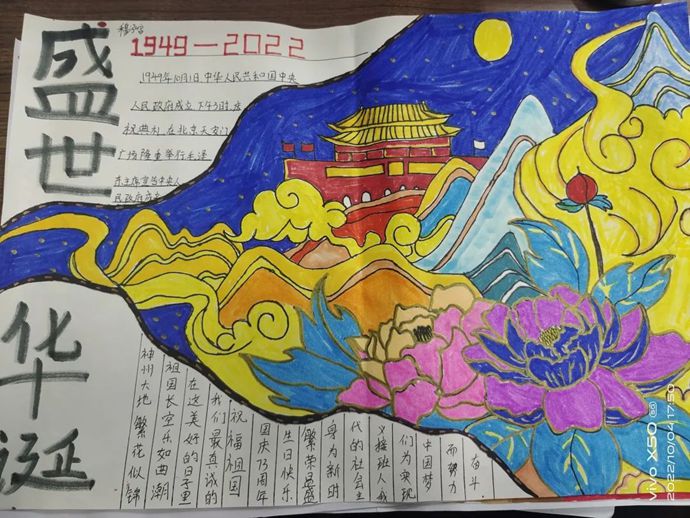 盛世华诞
1949—2022
1949年10月1日,中华人民共和国中央
人民政府成立下午3时,庆
祝典礼在北京天安门
广场隆重举行毛泽
东主席宣告中央人
民政府成立
神州大地 繁花似锦
祖国长空乐如曲潮
在这美好的日子里
我们最真诚的
祝福祖国
国庆73周年
生日快乐
繁荣昌盛
身为新时
代的社会主
义接班人我
们为实现
中国梦
而努力
奋斗.
vivo X50 5G
2022/10/04 17:50